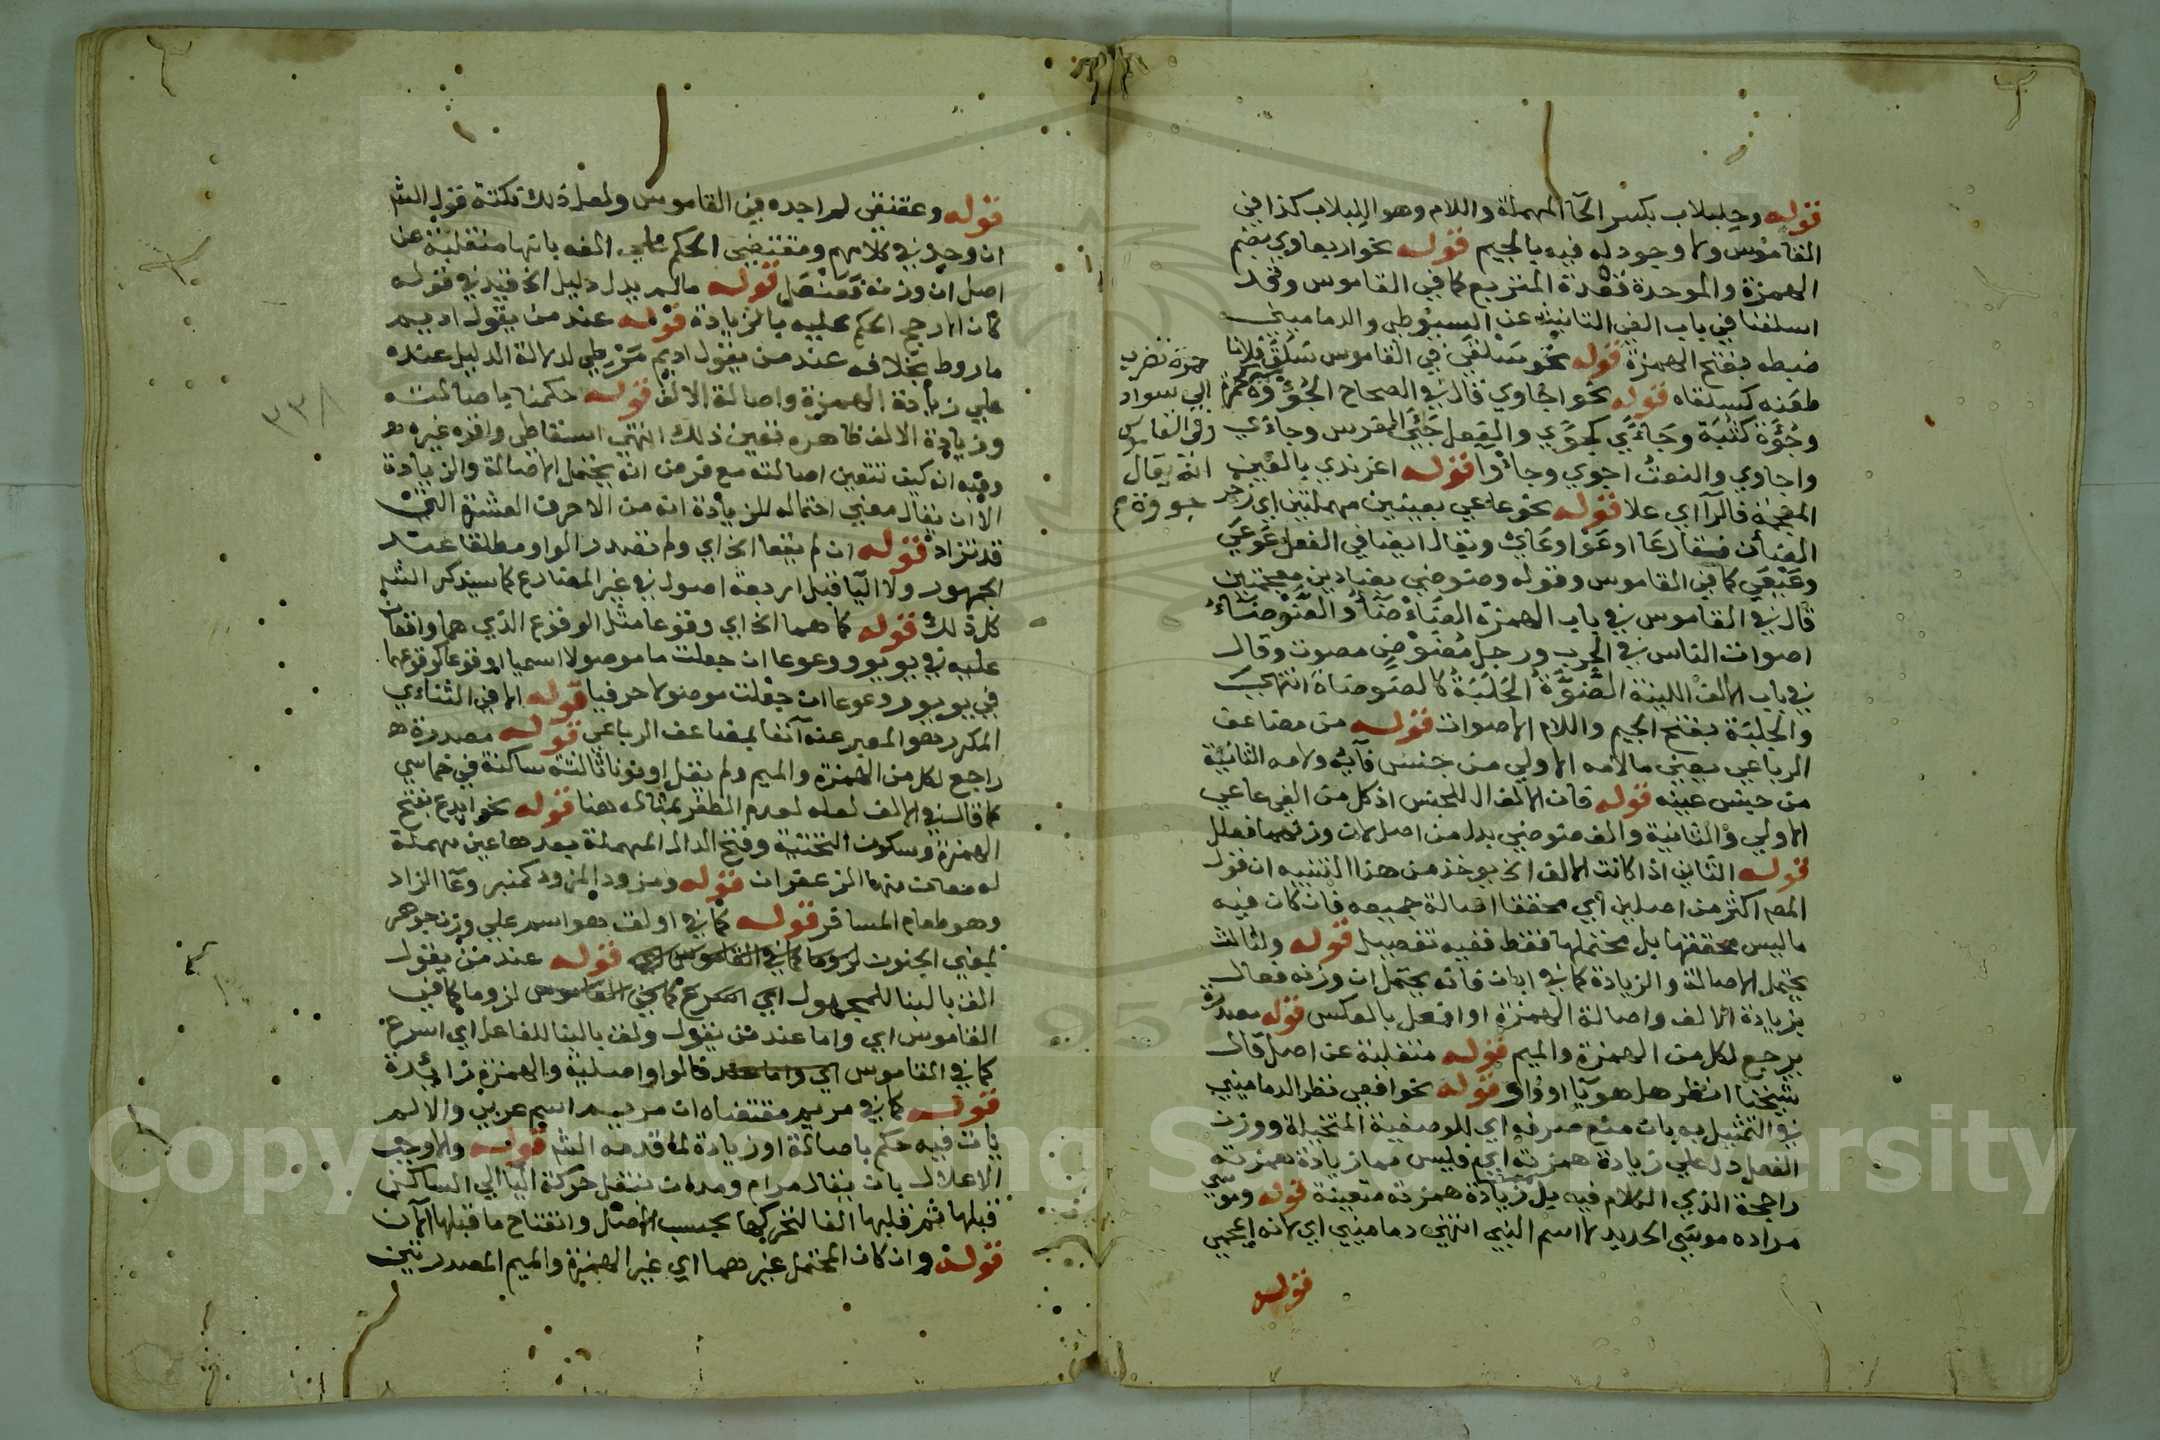 قوله وحلبلاب بكسر الحآ المهملة واللام وهو اللبلاب كذا في
القاموس ولا وجود له فيه بالجيم قوله نحو اربعاوي بضم
الهمزة والموحدة قعدة المتربع كما في القاموس وقد
اسلفنا في باب الفي التانيث عن السيوطي والدماميني
ضبطه بفتح الهمزة قوله نحو سلقى في القاموس سلق فلانا
طعنه كسلقاه قوله نحو اجاوي قال في الصحاح الجؤوة
وجؤة كثبة وجأي كجوي والفعل جئي الفرس وجاءي
واجاوي والنعت اجوي وجاوا قوله اغرندي بالغين
المعجمة فالرآ اي علا قوله نحو عاعي بعينين مهملتين اي زجر
الضأن فقال عا او عو او عاي ويقال ايضا في الفعل عوعي
وعيعي كما في القاموس وقوله وضوضي بضادين معجمتين
قال في القاموس في باب الهمزة الضأضأ والضوضأ
اصوات الناس في الحرب ورجل مضوض مصوت وقال
في باب الالف اللينة الضوة الجلبة كالضوضاة انتهي
والجلبة بفتح الجيم واللام الاصوات قوله من مضاعف
الرباعي يعني ما لامه الاولي من جنس فآيه ولامه الثانية
من جنس عينه قوله فان الالف ال للجنس اذ كل من الفي عاعي
الاولي والثانية والف ضوضي بدل من اصل لان وزنهما فعلل
قوله الثاني اذا كانت الالف الخ يوخذ من هذا التنبيه ان قول
المص اكثر من اصلين اي محققا اصالة جميعه فان كان فيه
ما ليس محققها بل محتملها فقط ففيه تفصيل قوله وثالث
يحتمل الاصالة والزيادة كما في ابان فانه يحتمل ان وزنه فعال
بزيادة الالف واصالة الهمزة او افعل بالعكس قوله مصدرة
يرجع لكل من الهمزة والميم قوله منقلبة عن اصل قال
شيخنا انظر هل هو يآ او واو قوله نحو افعي نظر الدماميني
في التمثيل به بان منع صرفه اي للوصفية المتخيلة ووزن
الفعل دل علي زيادة همزته اي فليس مما زيادة همزته
راجحة الذي الكلام فيه بل زيادة همزته متعينة قوله وموسي
مراده موسي الحديد لا اسم النبي انتهي دماميني اي لانه اعجمي
قوله
حمرة تضرب
الي سواد
وفي القاموس
انه يقال
جووة
قوله وعقنقي لم اجده في القاموس ولعل ذلك نكتة قول الش
ان وجد في كلامهم ومقتضي الحكم علي الفه بانها منقلبة عن
اصل ان وزنه فعنعل قوله ما لم يدل دليل الخ قيد في قوله
كان الارجح الحكم عليه بالزيادة قوله عند من يقول اديم
ماروط بخلافه عند من يقول اديم مرطي لدلالة الدليل عنده
علي زيادة الهمزة واصالة الالف قوله حكمنا باصالته
وزيادة الالف ظاهره تعين ذلك انتهي اسقاطي واقره غيره
وفيه انه كيف تتعين اصالته مع فرض انه يحتمل الاصالة والزيادة
الا ان يقال معني احتماله للزيادة انه من الاحرف العشرة التي
قد تزاد قوله ان لم يقعا الخ اي ولم تصدر الواو مطلقا عند
الجمهور ولا اليآ قبل اربعة اصول في غير المضارع كما سيذكر الش
كل ذلك قوله كما هما الخ اي وقوعا مثل الوقوع الذي هما واقعان
عليه في يويو ووعوعا ان جعلت ما موصولا اسميا او وقوعا كوقوعهما
في يويو ووعوعا ان جعلت موصولا حرفيا قوله الا في الثناءي
المكرر هو المعبر عنه آنفا بمضاعف الرباعي قوله مصدرة
راجع لكل من الهمزة والميم ولم يقل او نونا ثالثة ساكنة في خماسي
كما قال في الالف لعله لعدم الظفر بمثاله هنا قوله نحو ايدع بفتح
الهمزة وسكون التحتية وفتح الدال المهملة بعدها عين مهملة
له معان منها الزعفران قوله ومزود المزود كمنبر وعآ الزاد
وهو طعام المسافر قوله كما في اولق هو اسم علي وزن جوهر
بمعني الجنون لزوما كما في القاموس قوله عند من يقول
الق بالبنا للمجهول اي اسرع كما في القاموس لزوما كما في
القاموس اي واما عند من يقول ولق بالبنا للفاعل اي اسرع
كما في القاموس اي واما عند فالواو اصلية والهمزة زائدة
قوله كما في مريم مقتضاه ان مريم اسم عربي والا لم
يات فيه حكم باصالة او زيادة لما قدمه الش قوله والا وجب
الاعلال بان يقال مرام ومدان بنقل حركة اليآ الي الساكن
قبلها ثم قلبها الفا لتحركها بحسب الاصل وانفتاح ما قبلها الآن
قوله وان كان المحتمل غيرهما اي غير الهمزة والميم المصدرتين